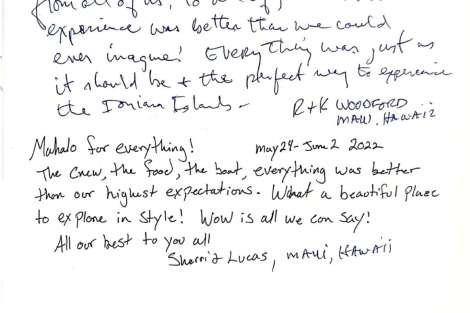 from all of us, to
experience was better than we could
ever imagine! Everything was just as
it should be + the perfect way to experience
the Ionian Islands -
R+K WOODFORD
MAUI, HAWAII
Mahalo for everything! may 29 - June 2 2022
The crew, the food, the boat, everything was better
than our highest expectations. What a beautiful place
to explore in style! Wow is all we can say!
All our best to you all
Lucas, MAUI, HAWAII